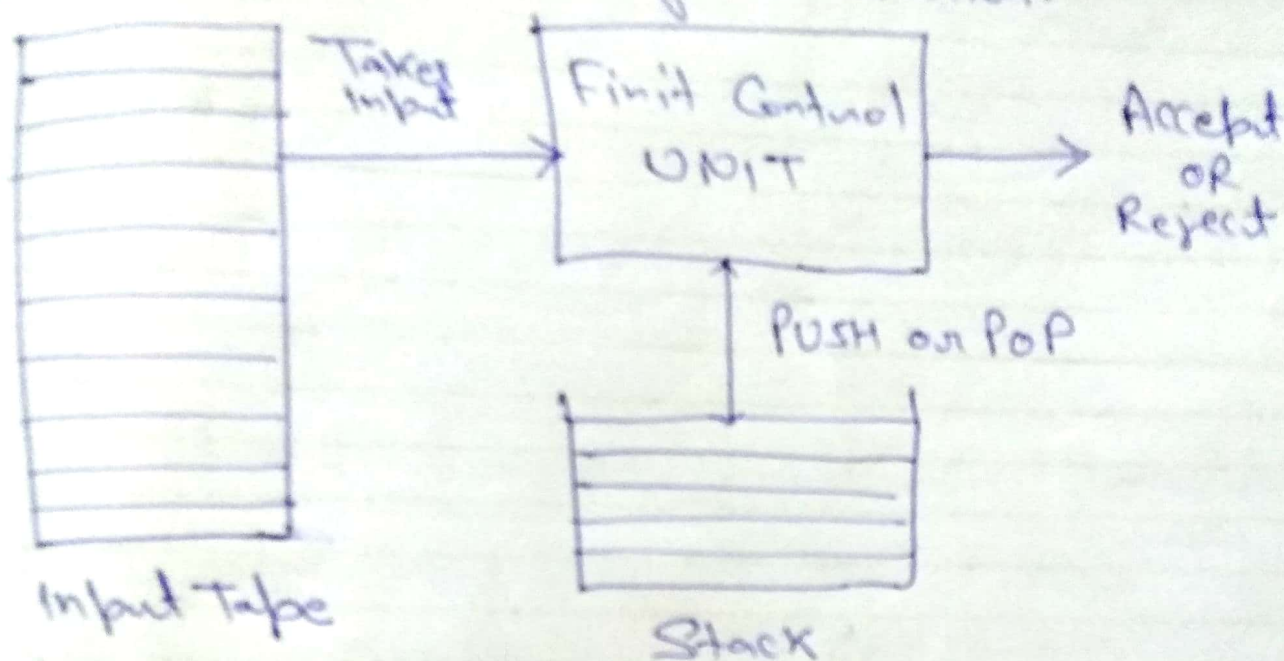 Takes
input
Finit Control
UNIT
Accept
OR
Reject
PUSH or POP
Input Tape
Stack